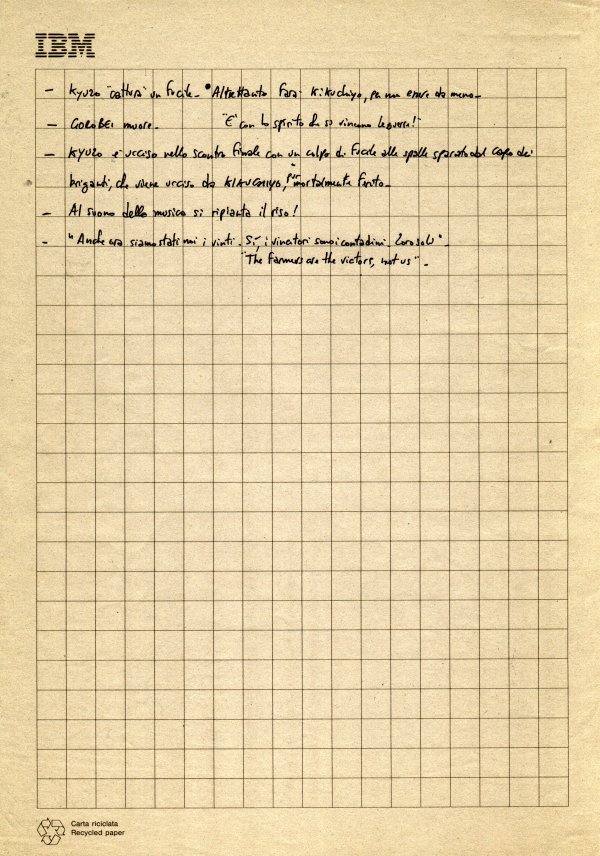 IBM
- Kyuzo "cattura" un fucile. Altrettanto farà Kikuchiyo, per non essere da meno.
- GOROBEI muore. "È con lo spirito che si vincono le guerre!"
- KYUZO è ucciso nello scontro finale con un colpo di fucile alle spalle sparato dal capo dei
briganti, che viene ucciso da KIKUCHIYO, pur mortalmente ferito.
- Al suono della musica si ripianta il riso!
- "Anche ora siamo stati noi i vinti. Sì, i vincitori sono i contadini. Loro soli".
"The farmers are the victors, not us".
Carta riciclata
Recycled paper